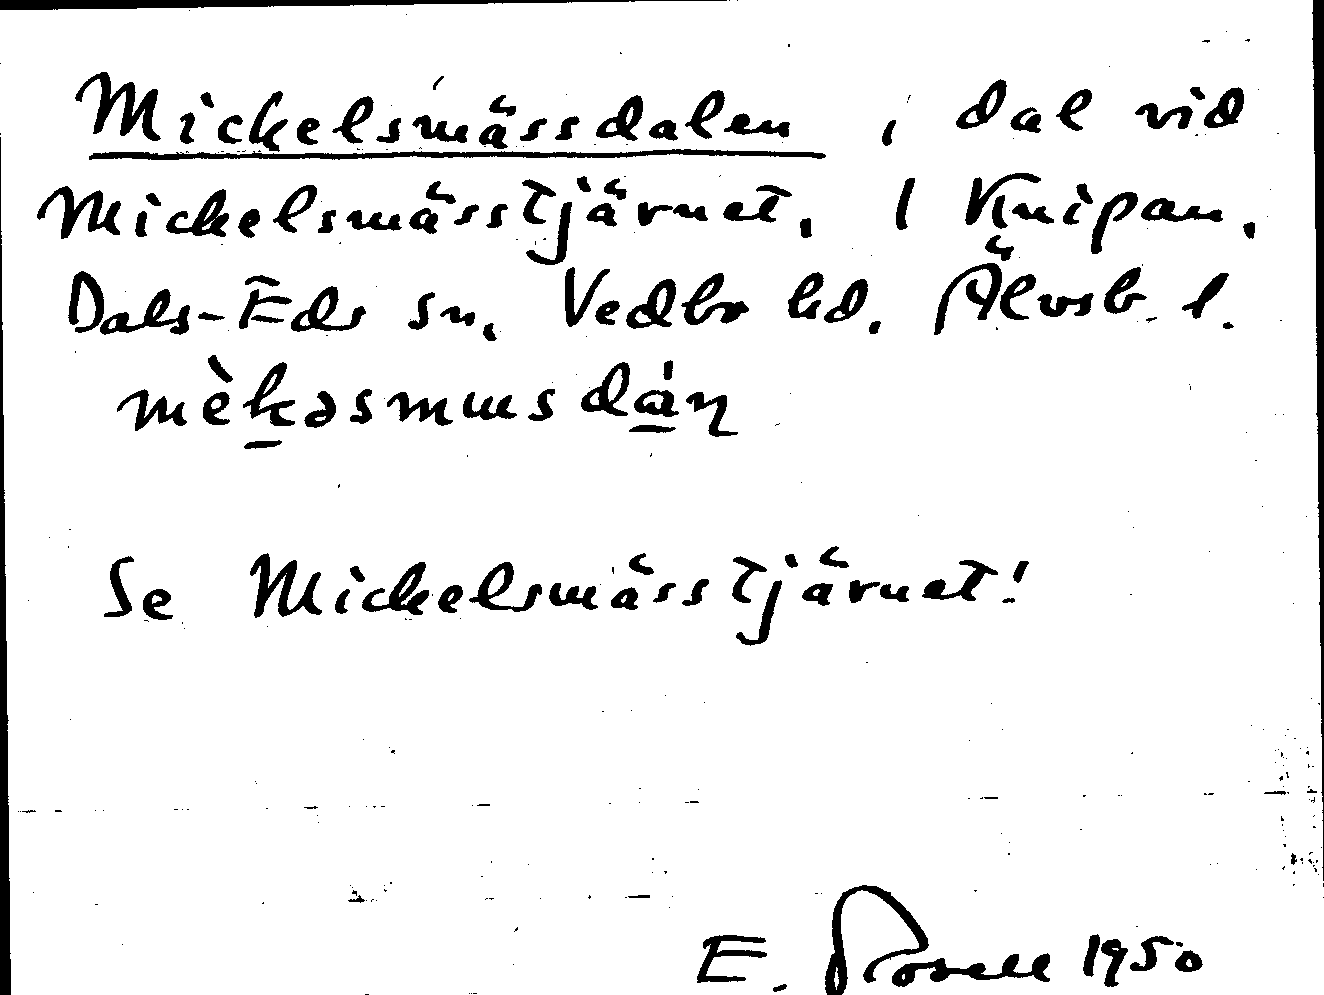 Mickelsmässdalen, dal vid
Mickelsmässtjärnet, I Knipan.
Dals-Eds sn, Vedbo hd. Älvsb. l.
mèkəsmusdáɳ
Se Mickelsmässtjärnet!
E. Rosell 1950